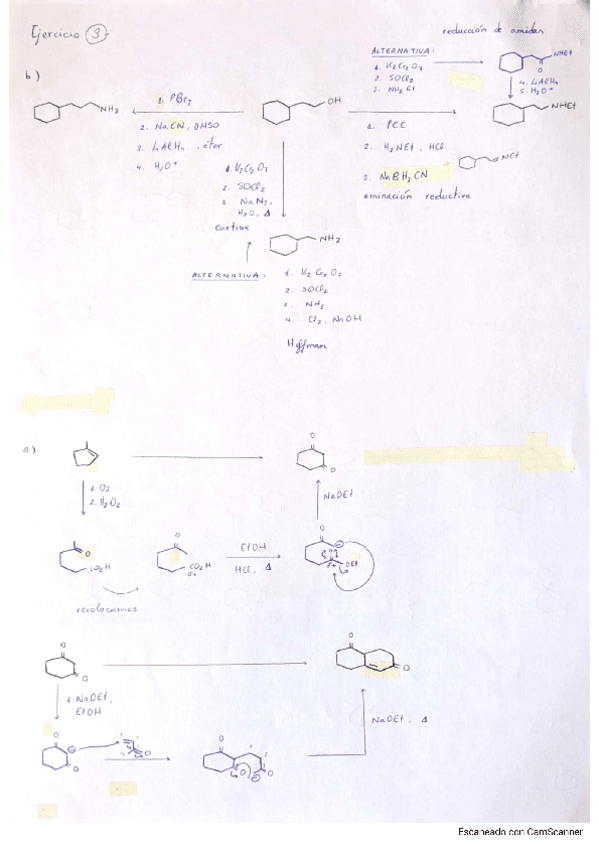 Ejercicio 3
reducción de amidas
ALTERNATIVA:
1. K2Cr2O7
2. SOCl2
3. NH2Et
NHEt
O
4. LiAlH4
5. H3O+
b)
NH2
1. PBr3
2. NaCN, DMSO
3. LiAlH4, éter
4. H3O+
OH
1. PCC
2. H2NEt, HCl
3. NaBH3CN
aminación reductiva
NHEt
NEt
1. K2Cr2O7
2. SOCl2
3. NaN3,
H2O, Δ
Curtius
NH2
ALTERNATIVA:
1. K2Cr2O7
2. SOCl2
3. NH3
4. Cl2, NaOH
Hoffman
a)
O
O
1. O3
2. H2O2
NaOEt
O
CO2H
O
CO2H
δ+
EtOH
HCl, Δ
O
OEt
recolocamos
O
O
O
O
1. NaOEt,
EtOH
NaOEt, Δ
O
O
O
O
O
Escaneado con CamScanner